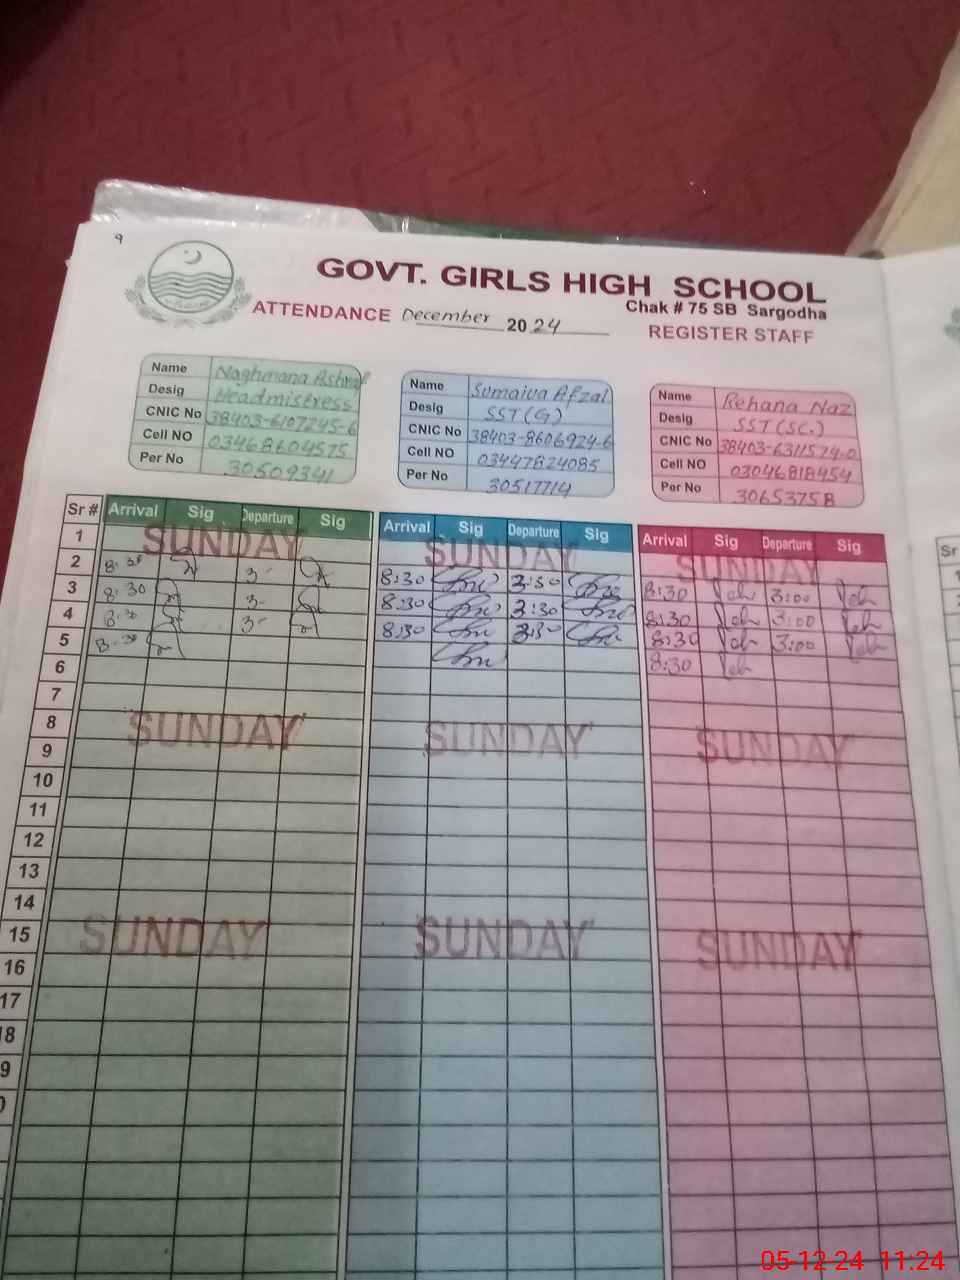 9
GOVT. GIRLS HIGH SCHOOL
Chak # 75 SB Sargodha
ATTENDANCE December 2024
REGISTER STAFF
Name Naghmana Ashraf
Desig Headmistress
CNIC No 38403-6107245-6
Cell NO 03468604575
Per No 30509341
Name Sumaiva Afzal
Desig SST (G)
CNIC No 38403-8606924-6
Cell NO 03447824085
Per No 30517714
Name Rehana Naz
Desig SST (SC.)
CNIC No 38403-6311574-0
Cell NO 03046818454
Per No 30653758
Sr # Arrival Sig Departure Sig Arrival Sig Departure Sig Arrival Sig Departure Sig
1 SUNDAY SUNDAY SUNDAY
2 8:30 3- 8:30 2:30 8:30 3:00
3 8:30 3- 8:30 2:30 8:30 3:00
4 8:30 3- 8:30 2:30 8:30 3:00
5 8:30 8:30
6
7
8 SUNDAY SUNDAY SUNDAY
9
10
11
12
13
14
15 SUNDAY SUNDAY SUNDAY
16
17
18
9
0
Sr
05-12-24 11:24